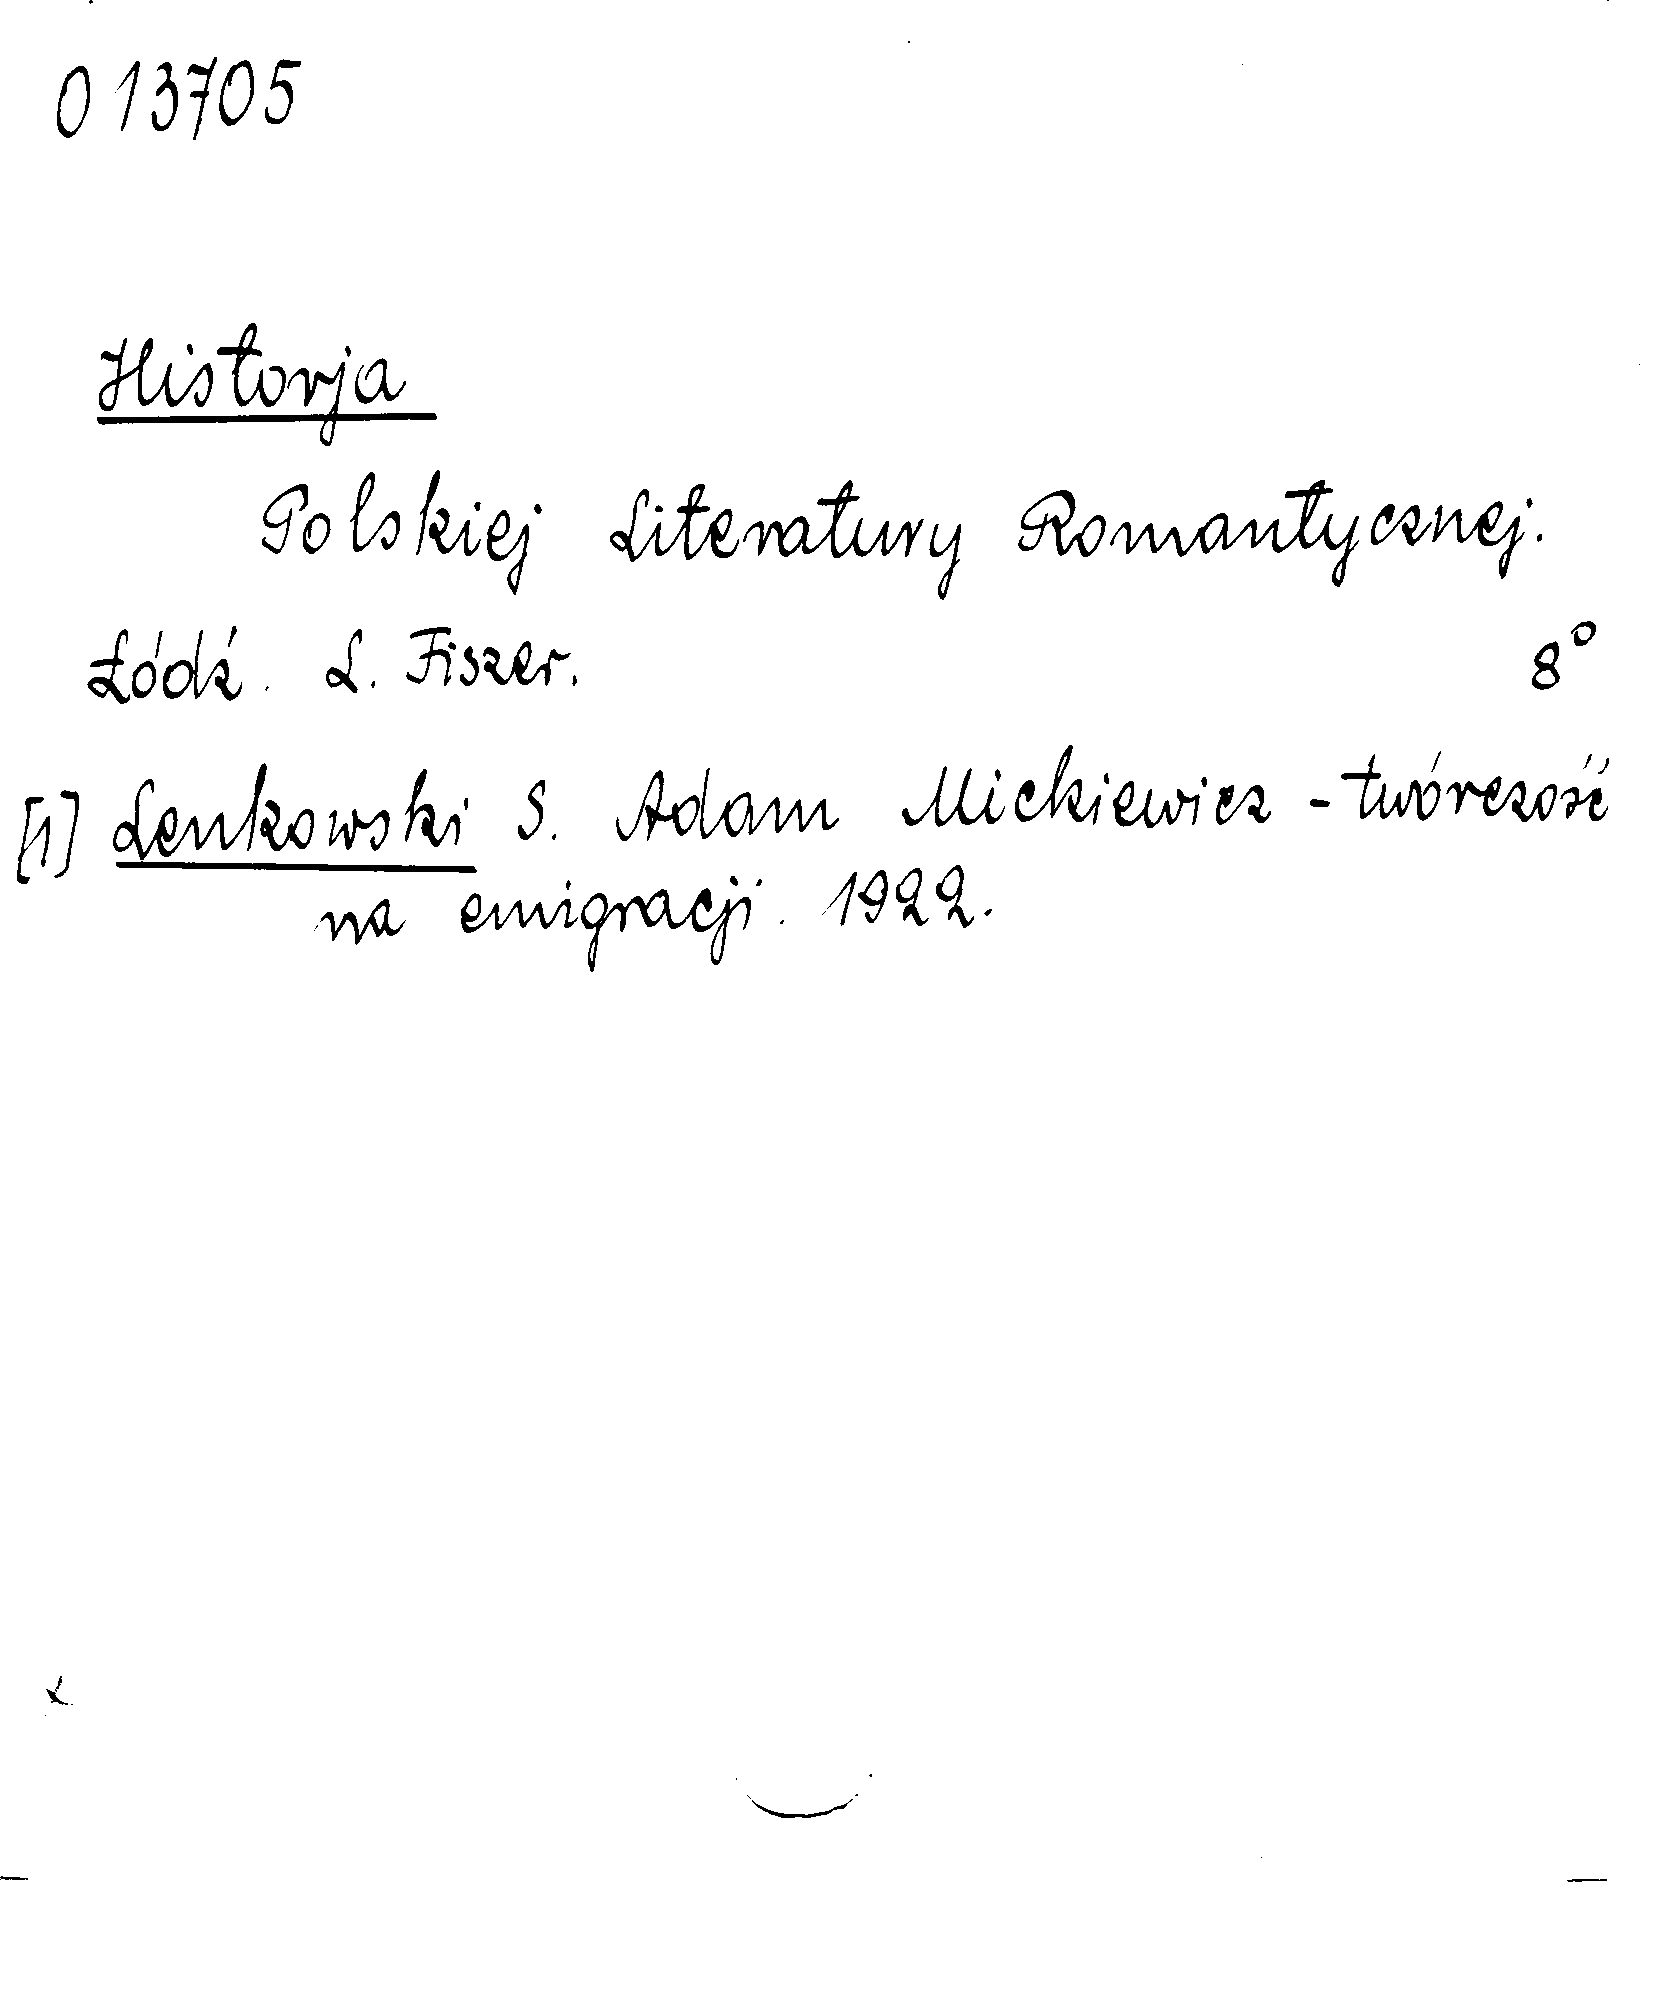 013705
Historja
Polskiej Literatury Romantycznej.
Łódź. L. Fiszer. 8°
[1] Lenkowski S. Adam Mickiewicz - twórczość
na emigracji. 1922.